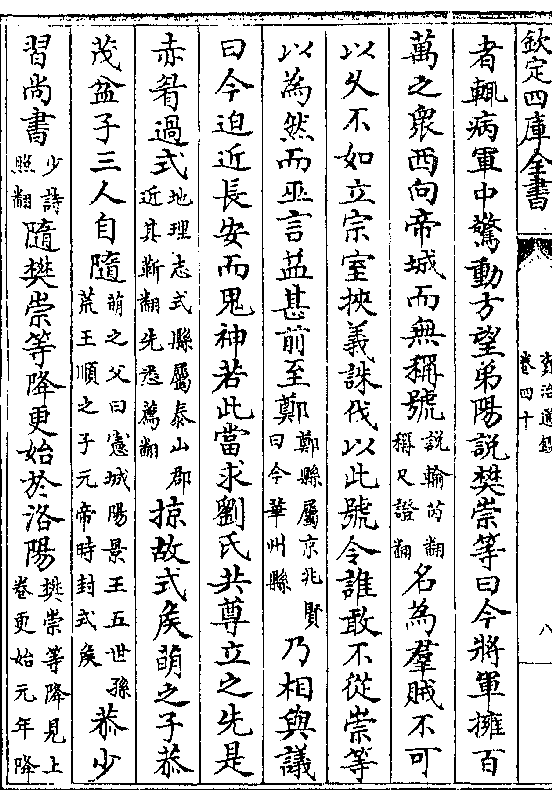 欽定四庫全書
資治通鑑
卷四十
八
者輒病軍中驚動方望弟陽說樊崇等曰今將軍擁百
萬之衆西向帝城而無稱號說輸芮翻稱尺證翻名為羣賊不可
以久不如立宗室挾義誅伐以此號令誰敢不從崇等
以為然而巫言益甚前至鄭鄭縣屬京兆賢曰今華州縣乃相與議
曰今迫近長安而鬼神若此當求劉氏共尊立之先是
赤眉過式地理志式縣屬泰山郡近其靳翻先悉薦翻掠故式侯萌之子恭
茂盆子三人自隨萌之父曰憲城陽景王五世孫荒王順之子元帝時封式侯恭少
習尚書少詩照翻隨樊崇等降更始於洛陽樊崇等降見上卷更始元年降